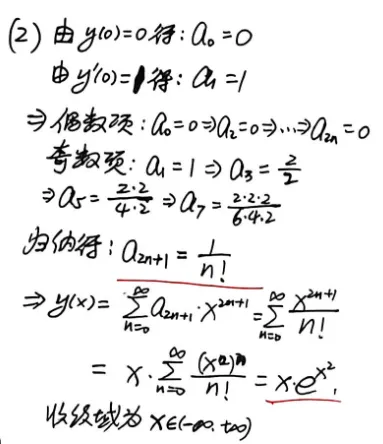 (2) 由y(0)=0得: a₀=0
由y'(0)=1得: a₁=1
⇒偶数项: a₀=0⇒a₂=0⇒…⇒a₂ₙ=0
奇数项: a₁=1⇒a₃=2/2
⇒a₅=(2·2)/(4·2)⇒a₇=(2·2·2)/(6·4·2)
归纳得: a₂ₙ₊₁=1/n!
⇒y(x)=∑_{n=0}^{∞} a₂ₙ₊₁·x^{2n+1}=∑_{n=0}^{∞} x^{2n+1}/n!
=x·∑_{n=0}^{∞} (x²)ⁿ/n!=x·e^{x²}.
收敛域为x∈(-∞,+∞)